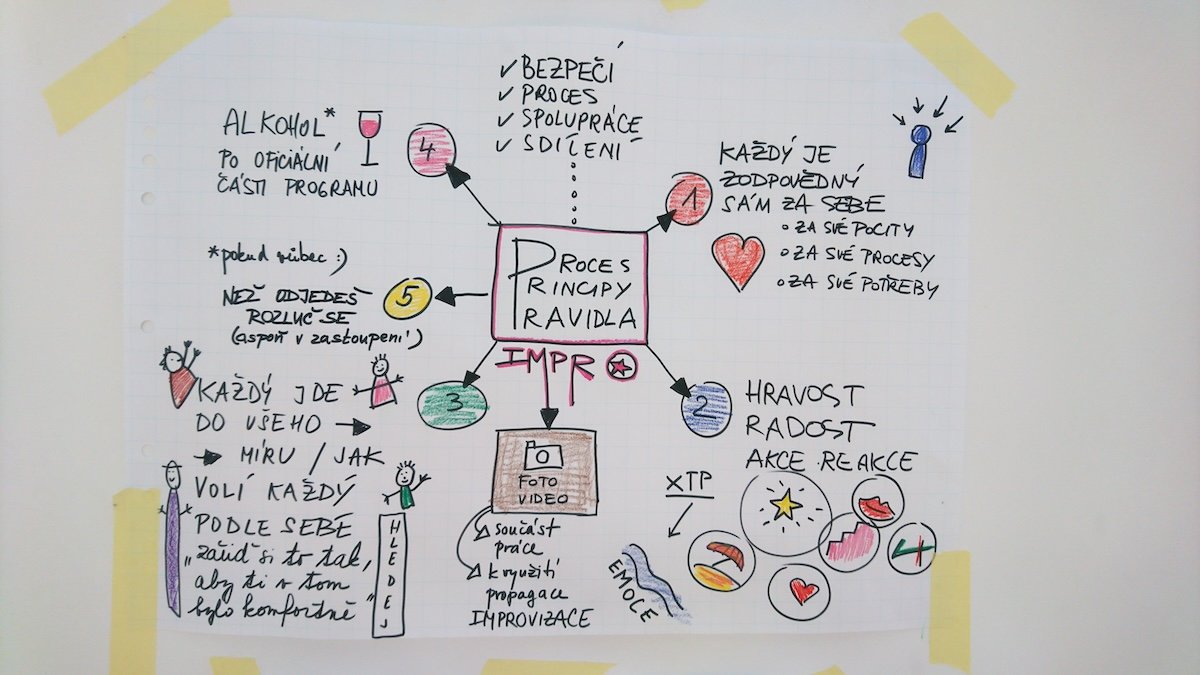 ✓ BEZPEČÍ
✓ PROCES
✓ SPOLUPRÁCE
✓ SDÍLENÍ
PROCES
PRINCIPY
PRAVIDLA
IMPRO
1
KAŽDÝ JE
ZODPOVĚDNÝ
SÁM ZA SEBE
• ZA SVÉ POCITY
• ZA SVÉ PROCESY
• ZA SVÉ POTŘEBY
2
HRAVOST
RADOST
AKCE REAKCE
XTP
EMOCE
3
KAŽDÝ JDE
DO VŠEHO →
→ MÍRU / JAK
VOLÍ KAŽDÝ
PODLE SEBE
„zařiď si to tak,
aby ti v tom
bylo komfortně“
HLEDEJ
4
ALKOHOL*
PO OFICIÁLNÍ
ČÁSTI PROGRAMU
*pokud vůbec :)
5
NEŽ ODJEDEŠ
ROZLUČ SE
(aspoň v zastoupení)
FOTO
VIDEO
součást
práce
k využití
propagace
IMPROVIZACE